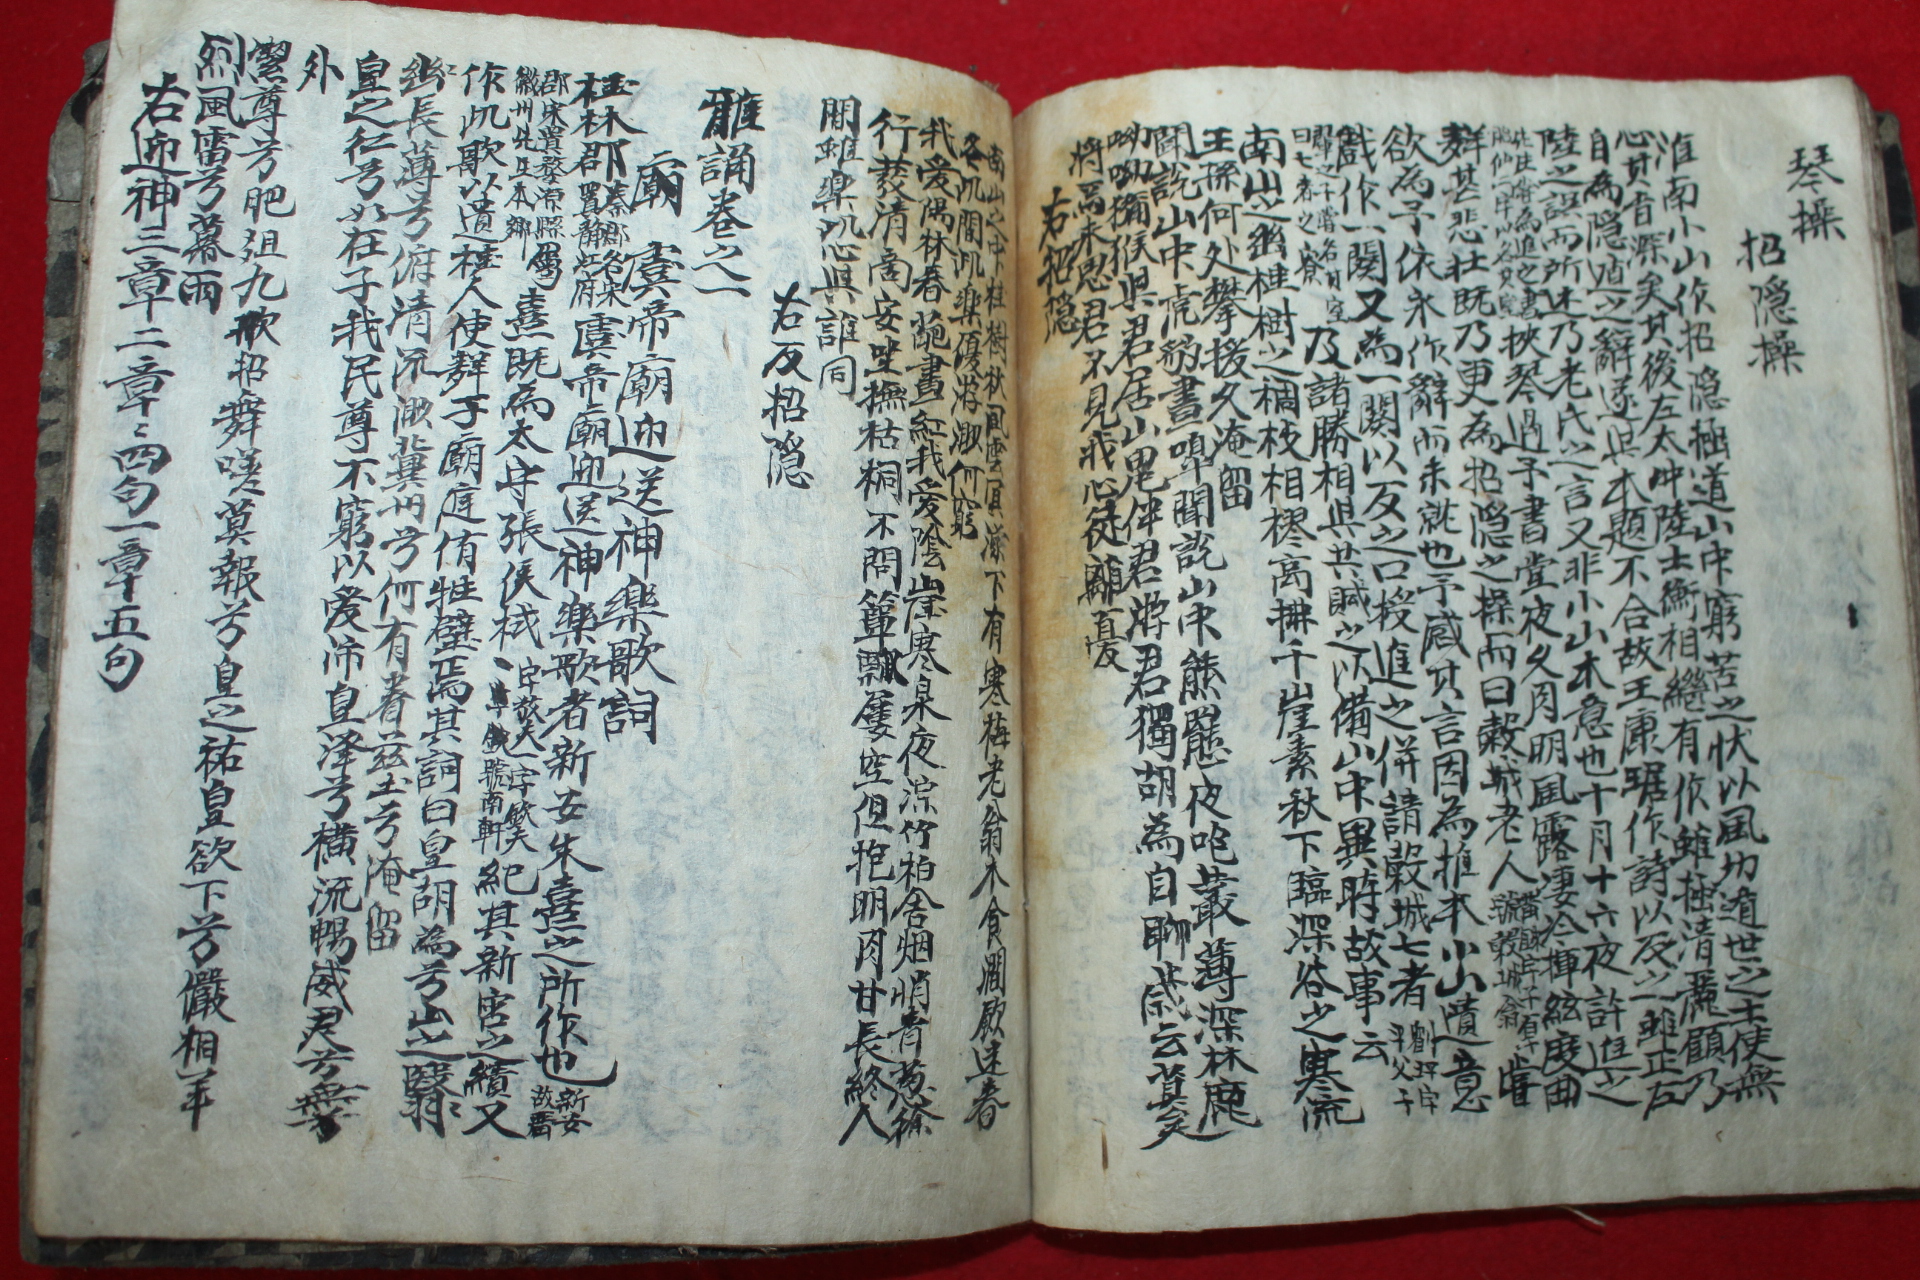 琴操
招隱操
淮南小山作招隱極道山中窮苦之狀以風切遁世之士使無
心其旨深矣其後左太冲陸士衡相繼有作雖極清麗顧乃
自為隱遁之辭遂與本題不合故王康琚作詩以反之雖正左
陸之誤而所述乃老氏之言又非小山本意也十月十六夜許進之
挾琴過予書堂夜久月明風露凄冷揮絃度曲
聲甚悲壯既乃更為招隱之操而曰穀城老人 號穀城翁 嘗
欲為予依永作辭而未就也予感其言因為推本小山遺意
戲作一闋又為一闋以反之口授進之併請穀城七者
及諸勝相與共賦之以備山中異時故事云
南山之幽桂樹之稠枝相樛高拂千崖素秋下臨深谷之寒流
王孫何處攀援久淹留
聞說山中虎豹晝嘷聞說山中熊羆夜咆叢薄深林鹿
呦呦獼猴與君居山鬼伴君游君獨胡為自聊歲云莫矣
將焉求思君不見我心徒離憂
右招隱
南山之中桂樹秋風雲冥濛下有寒梅老翁木食澗飲迷春
冬此間此樂優游渺何窮
我愛陽林春葩晝紅我愛陰崖寒泉夜淙竹柏含烟悄青葱徐
行發清商安坐撫枯桐不問簞瓢屢空但抱明月甘長終人
間雖樂此心與誰同
右反招隱
雅誦卷之一
廟 虞帝廟迎送神樂歌詞
桂林郡虞帝廟迎送神樂歌者新安朱熹之所作也 新安
熹既為太守張侯栻 號南軒 紀其新宮之績又
作此歌以遺桂人使聲于廟庭侑牲璧焉其詞曰皇胡為兮山之翳
幽長薄兮俯清流渺冀州兮何有眷兹土兮淹留
皇之仁兮如在子我民尊不窮以愛沛皇澤兮橫流暢威靈兮無
外
潔尊兮肥俎九歌招舞嗟莫報兮皇之祐皇欲下兮儼相羊
烈風雷兮暮雨
右迎神三章二章章四句一章五句